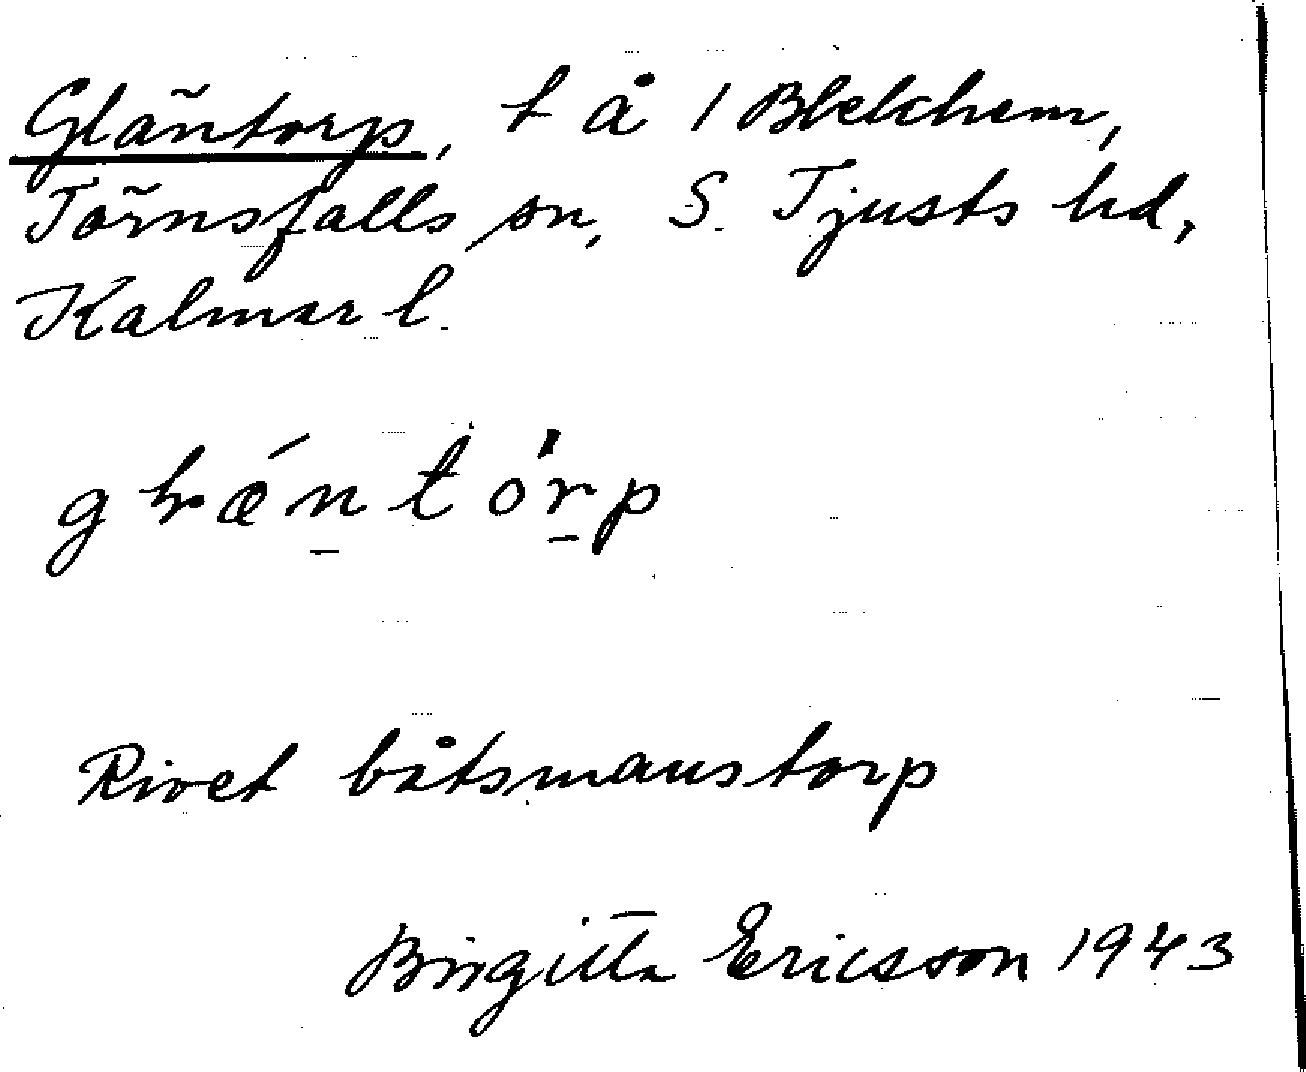 Gläntorp, t å 1 Blekhem,
Törnsfalls sn, S. Tjusts hd,
Kalmar l.
gläntórp
Rivet båtsmanstorp
Birgitta Ericsson 1943